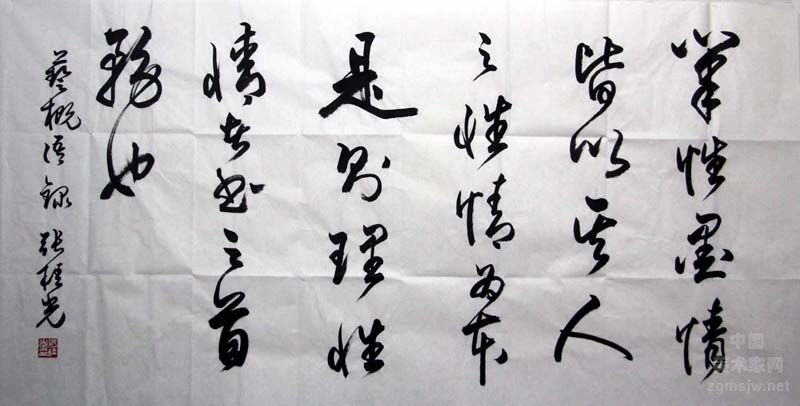 筆性墨情
皆以其人
之性情为本
是则理性
情者书之首
務也
藝概语録 张光
中国
美术家网
zgmsjw.net